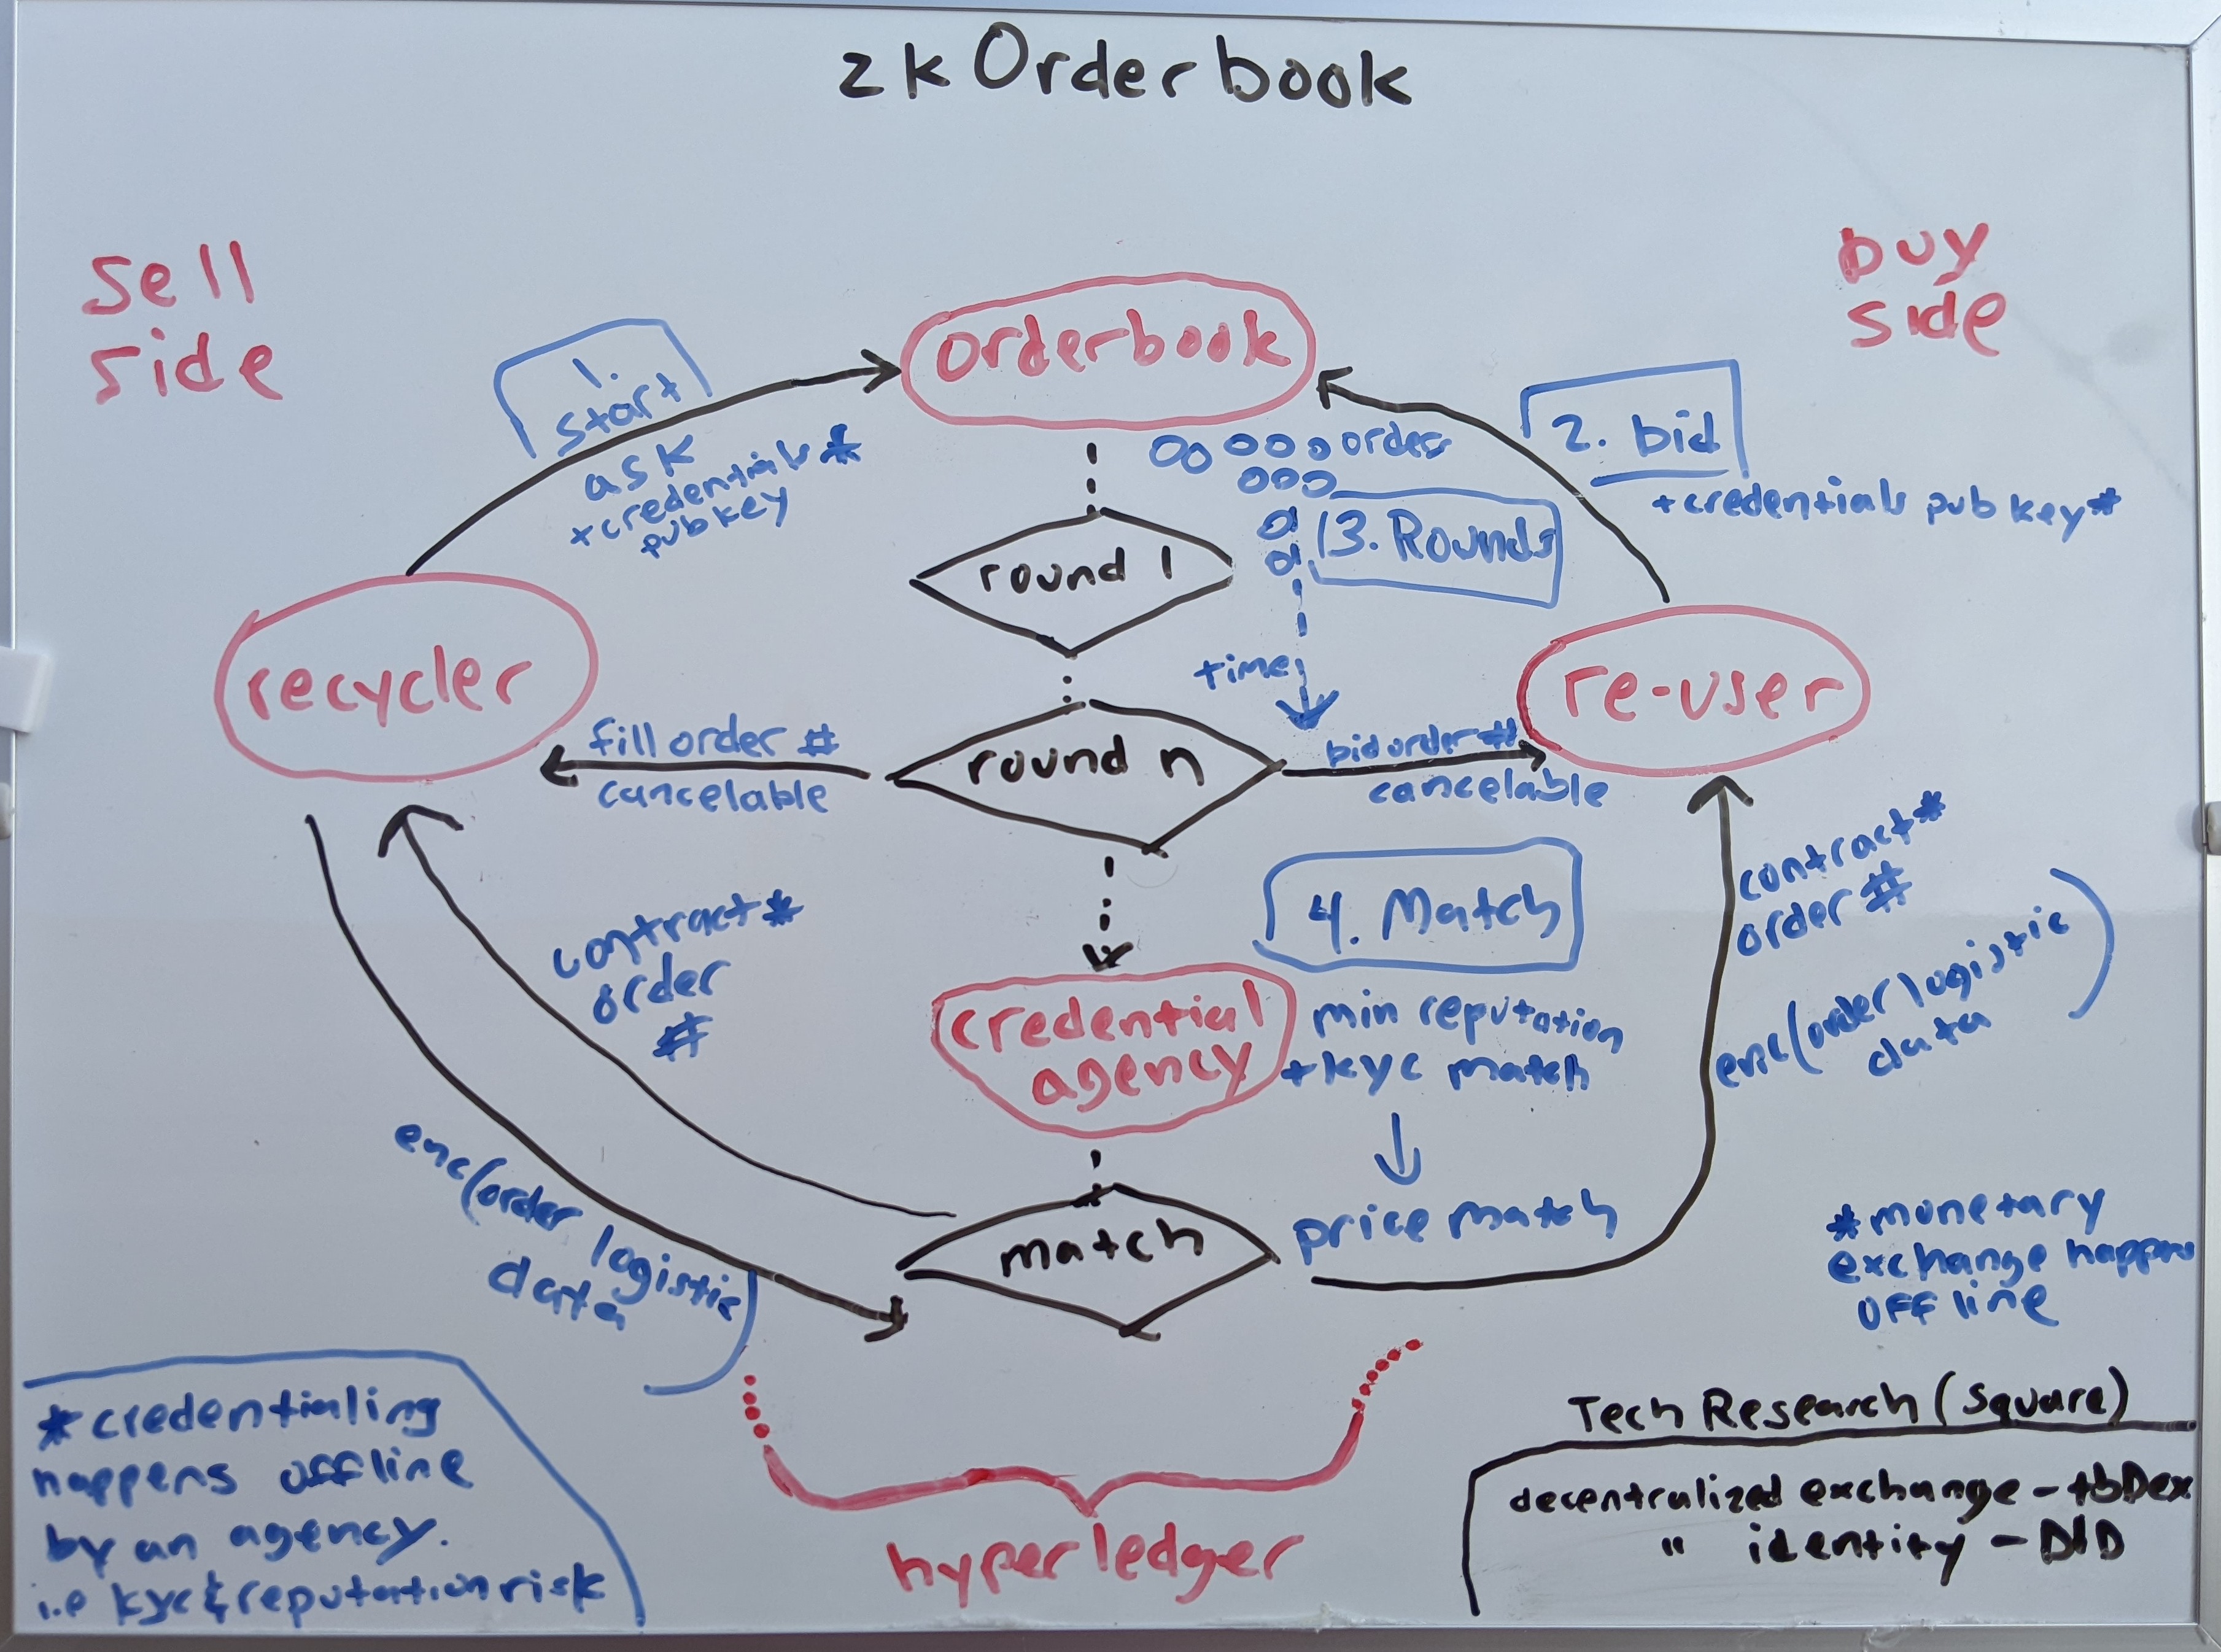 zk Orderbook
sell
side
buy
side
orderbook
1.
start
ask
+credentials*
pubkey
orders
2. bid
+credentials pub key*
3. Rounds
round 1
time
recycler
re-user
fill order #
cancelable
round n
bid order #
cancelable
contract*
order
#
4. Match
contract*
order #
enc(order logistic
data
)
credential
agency
min reputation
+kyc match
price match
match
enc(order logistic
data
)
*monetary
exchange happens
offline
*credentialing
happens offline
by an agency.
i.e kyc & reputation risk
hyperledger
Tech Research (Square)
decentralized exchange - tbDex
" identity - DID